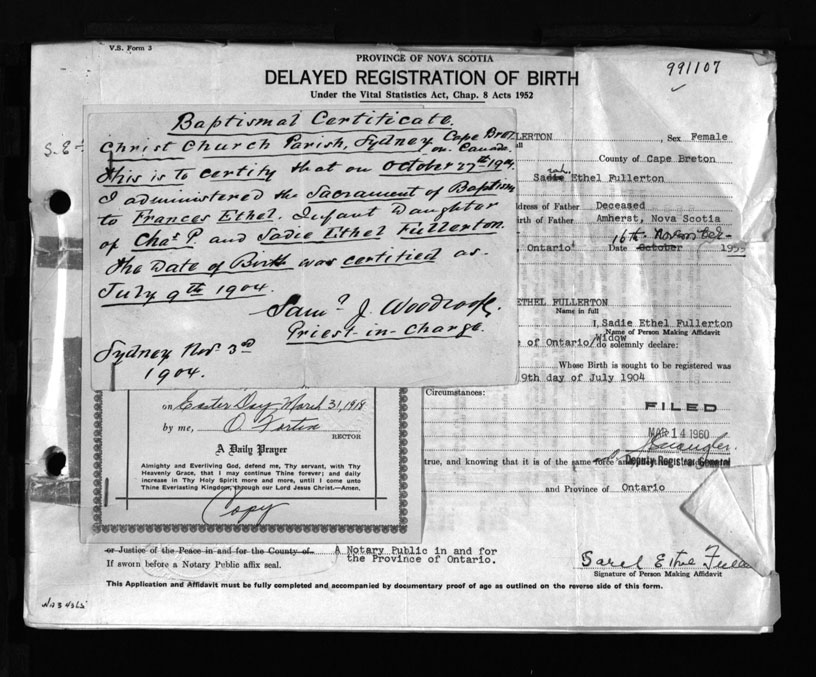 V.S. Form 3
PROVINCE OF NOVA SCOTIA
DELAYED REGISTRATION OF BIRTH
Under the Vital Statistics Act, Chap. 8 Acts 1952
991107
Baptismal Certificate.
Christ Church Parish, Sydney, Cape Breton. Canada.
This is to certify that on October 27th 1904
I administered the Sacrament of Baptism
to Frances Ethel. Infant Daughter
of Chas P. and Sadie Ethel Fullerton.
The Date of Birth was certified as.
July 9th 1904.
Priest-in-Charge.
Sydney Nov 3rd
1904.
LLERTON , Sex Female
County of Cape Breton
Ethel Fullerton
dress of Father Deceased
irth of Father Amherst, Nova Scotia
Ontario Date 16th November October 195
ETHEL FULLERTON
Name in full
I, Sadie Ethel Fullerton
Name of Person Making Affidavit
of Ontario/Widow do solemnly declare:
Whose Birth is sought to be registered was
9th day of July 1904
Circumstances:
FILED
MAR 14 1960
Deputy Registrar General
true, and knowing that it is of the same force
and Province of Ontario
on Easter Day March 31, 1918
by me,
RECTOR
A Daily Prayer
Almighty and Everliving God, defend me, Thy servant, with Thy
Heavenly Grace, that I may continue Thine forever; and daily
increase in Thy Holy Spirit more and more, until I come unto
Thine Everlasting Kingdom, through our Lord Jesus Christ.—Amen.
Copy
or Justice of the Peace in and for the County of A Notary Public in and for
If sworn before a Notary Public affix seal. the Province of Ontario.
Signature of Person Making Affidavit
This Application and Affidavit must be fully completed and accompanied by documentary proof of age as outlined on the reverse side of this form.